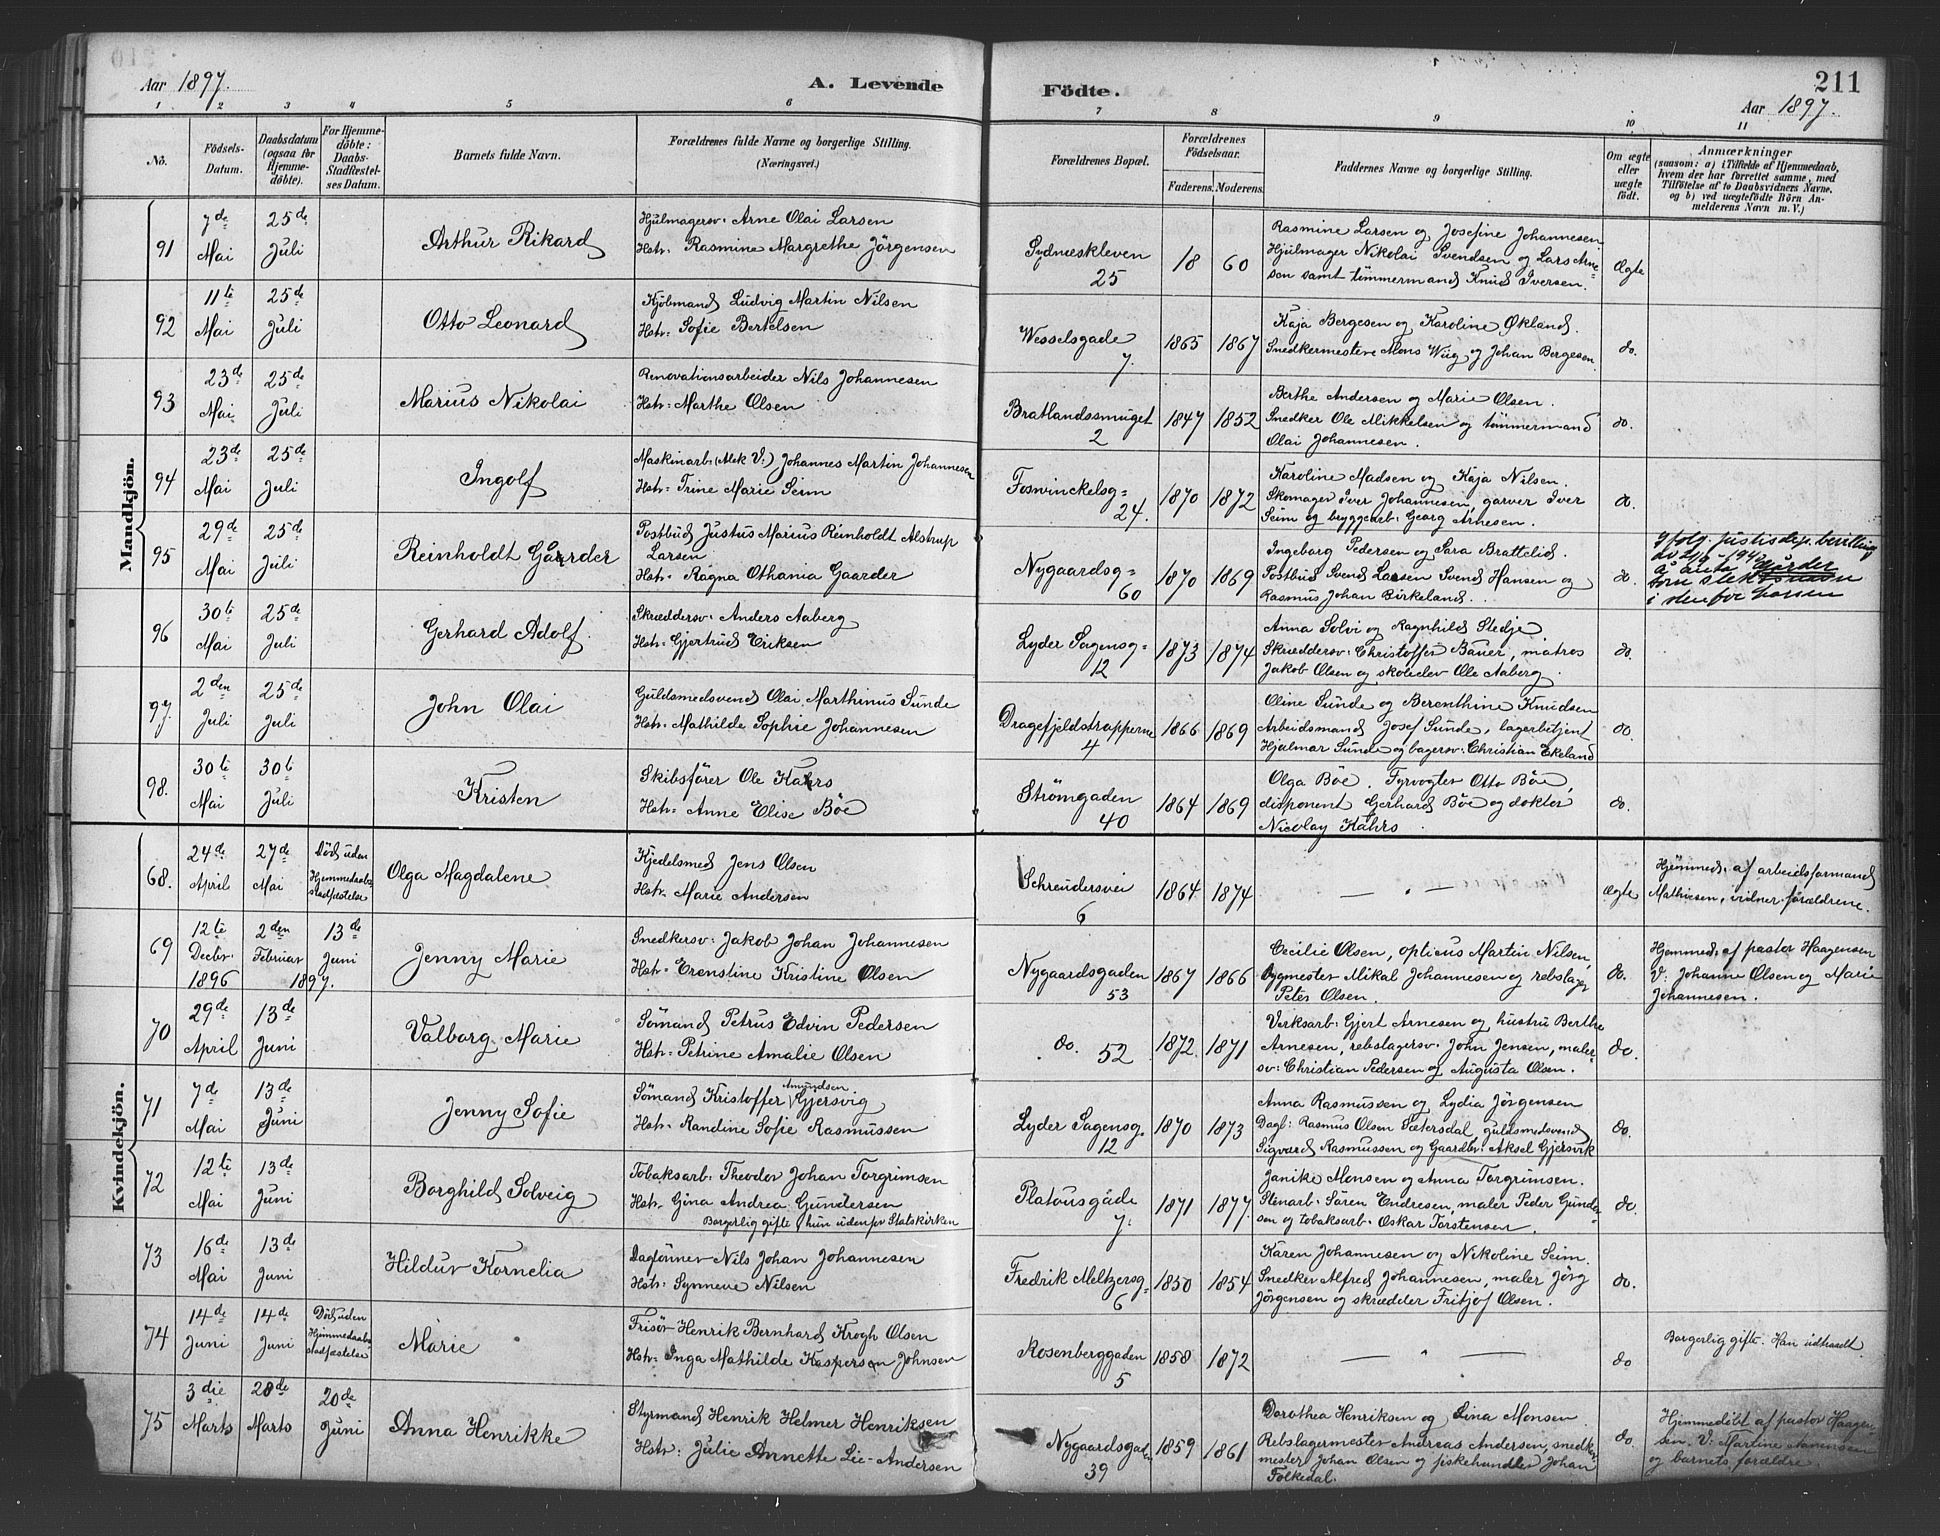 Aar 1897.
A. Levende
Födte.
211
Aar 1897.
1 2 3 4 5 6 7 8 9 10 11
No.
Födsels-Datum.
Daabsdatum (ogsaa for Hjemme-döbte).
For Hjemme-döbte: Daabs-Stadfæstel-ses Datum.
Barnets fulde Navn.
Forældrenes fulde Navne og borgerlige Stilling. (Næringsvei.)
Forældrenes Bopæl.
Forældrenes Födselsaar.
Faderens. Moderens.
Faddernes Navne og borgerlige Stilling.
Om ægte eller uægte födt.
Anmærkninger
(saasom: a) i Tilfælde af Hjemmedaab, hvem der har forrettet samme, med Tilföielse af to Daabsvidners Navne. og b) ved uægtefödte Börn An-melderens Navn m. V.)
Mandkjön.
91
7de Mai
25de Juli
Arthur Rikard
Hjulmagersv: Arne Olai Larsen
Hstr: Rasmine Margrethe Jörgensen
Sydneskleven 25
18 60
Rasmine Larsen og Josefine Johannesen
Hjulmager Nikolai Svendsen og Lars Arne-
sen samt tömmermand Knud Iversen.
Ægte
92
11te Mai
25de Juli
Otto Leonard
Kjöbmand Ludvig Martin Nilsen
Hstr: Sofie Bertelsen
Wesselsgade 7.
1865 1867
Kaja Bergesen og Karoline Økland.
Snedkermestere Mons Wiig og Johan Bergesen
do.
93
23de Mai
25de Juli
Marius Nikolai
Renovationsarbeider Nils Johannesen
Hstr: Marthe Olsen
Bratlandssmuget 2
1847 1852
Berthe Andersen og Marie Olsen.
Snedker Ole Mikkelsen og tömmermand
Olai Johannesen.
do.
94
23de Mai
25de Juli
Ingolf
Maskinarb: (Mek V:) Johannes Martin Johannesen
Hstr: Trine Marie Seim
Foswinckelsg: 24.
1870 1872
Karoline Madsen og Kaja Nilsen.
Skomager Iver Johannesen, garver Iver
Seim og bryggearb: Georg Arnesen.
do.
95
29de Mai
25de Juli
Reinholdt Gaarder
Postbud Justus Marius Reinholdt Alstrup
Larsen
Hstr: Ragna Othania Gaarder
Nygaardsg: 60
1870 1869
Ingeborg Pedersen og Sara Brattelid.
Postbud Svend Larsen Svend Hansen og
Rasmus Johan Birkeland.
do.
Ifölg. justisdep. bevilling
å ånta Gårder
som slektsnavn
i stenfor Larsen
96
30te Mai
25de Juli
Gerhard Adolf.
Skræddersv: Anders Aaberg
Hstr: Gjertrud Eriksen
Lyder Sagensg: 12
1873 1874
Anna Solvi og Ragnhild Stedje.
Skræddersv: Christoffer Bauer, matros
Jakob Olsen og skoleelev Ole Aaberg.
do.
97.
2den Juli
25de Juli
John Olai
Guldsmedsvend Olai Marthinus Sunde
Hstr: Mathilde Sophie Johannesen
Dragefjeldstrapperne 4
1866 1869
Oline Sunde og Berenthine Knudsen
Arbeidsmand Josef Sunde, lagerbetjent
Hjalmar Sunde og bagersv: Christian Ekeland
do.
98.
30te Mai
30te Juli
Kristen
Skibsförer Ole Kahrs
Hstr: Anne Elise Böe
Strömgaden 40
1864 1869
Olga Böe. Fyrvogter Otto Böe,
disponent Gerhard Böe og doktor
Nicolay Kahrs.
do.
Kvindekjön.
68.
24de April
27de Mai
Död uden Hjemmedaabs stadfæstelse
Olga Magdalene
Kjedelsmed Jens Olsen
Hstr: Marie Andersen
Schreudersvei 6
1864 1874
— " —
Ægte
Hjemmed: af arbeidsformand
Mathiesen, vidner: forældrene.
69
12te Decbr. 1896
2den Februar 1897.
13de Juni
Jenny Marie
Snedkersv: Jakob Johan Johannesen
Hstr: Erenstine Kristine Olsen
Nygaardsgaden 53
1867 1866
Cecilie Olsen, opticus Martin Nilsen,
bygmester Mikal Johannesen og rebslager
Peter Olsen.
do.
Hjemmed: af pastor Haagensen
V. Johanne Olsen og Marie
Johannesen.
70
29de April
13de Juni
Valborg Marie
Sömand Petrus Edvin Pedersen
Hstr: Petrine Amalie Olsen
do. 52
1872. 1871
Verksarb: Gjert Arnesen og hustru Berthe
Arnesen, rebslagersv: John Jensen, maler-
sv: Christian Pedersen og Augusta Olsen.
do.
71
7de Mai
13de Juni
Jenny Sofie
Amundsen
Sömand Kristoffer Gjersvig
Hstr: Randine Sofie Rasmussen
Lyder Sagensg. 12
1870 1873
Anna Rasmussen og Lydia Jörgensen
Dagb: Rasmus Olsen Sætersdal, guldsmedsvend
Sigvard Rasmussen og Gaardbr: Aksel Gjersvik
do.
72
12te Mai
13de Juni
Borghild Solveig
Tobaksarb: Theodor Johan Torgrimsen
Hstr. Gina Andrea Gundersen
Borgerlig gifte, hun udenfor Statskirken
Platousgade 7.
1871 1877
Janike Monsen og Anna Torgrimsen.
Stenarb: Sören Endresen, maler Peder Gunder-
sen og tobaksarb: Oskar Torstensen.
do.
73
16de Mai
13de Juni
Hildur Kornelia
Dagförner Nils Johan Johannesen
Hstr: Synneve Nilsen
Fredrik Meltzersg: 6
1850 1854
Karen Johannesen og Nikoline Seim.
Snedker Alfred Johannesen, maler Jörg
Jörgensen og skrædder Fritjof Olsen.
do.
74
14de Juni
14de Juni
Död uden Hjemmedaabs stadfæstelse
Marie
Frisör Henrik Bernhard Krogh Olsen
Hstr: Inga Mathilde Kasperson Johnsen
Rosenberggaden 5
1858 1872
— " —
do
Borgerlig gifte. Han udtraadt.
75
3die Marts
28de Marts
20de Juni
Anna Henrikke
Styrmand Henrik Helmer Henriksen
Hstr: Julie Annette Lie-Andersen
Nygaardsgaden 39
1859 1861
Dorothea Henriksen og Lina Monsen
Rebslagermester Andreas Andersen, snedker-
mester Johan Olsen og fiskehandler Johan
Folkedal.
do.
Hjemmedöbt af pastor Haagen-
sen. V: Martine
og barnets forældre.